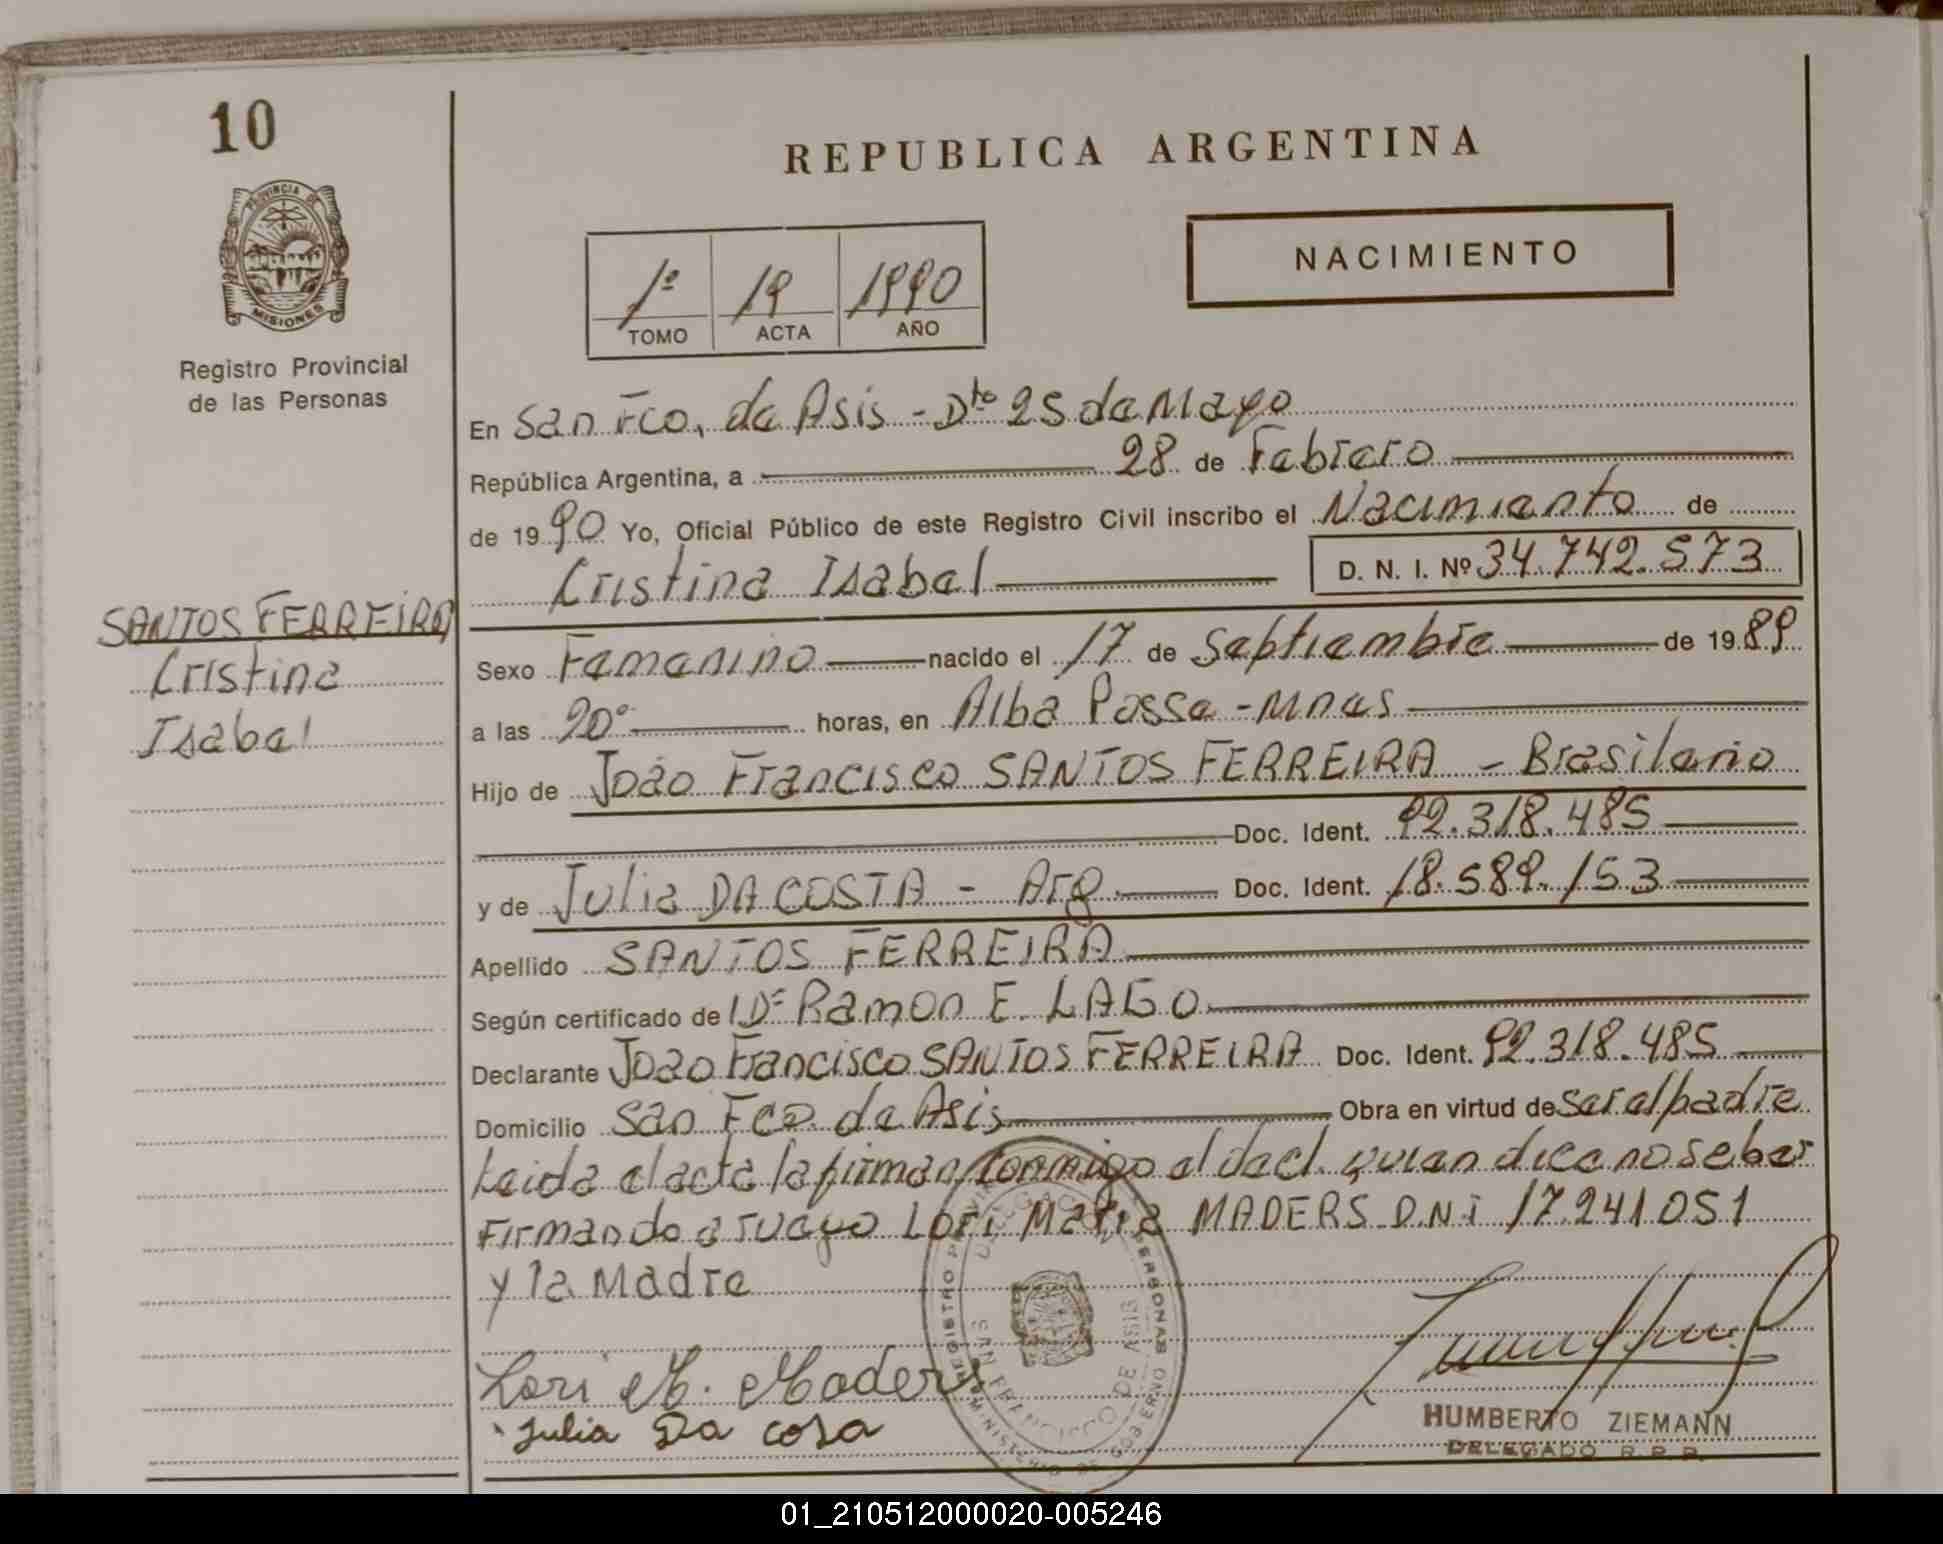 10
REPUBLICA ARGENTINA
PROVINCIA DE
MISIONES
Registro Provincial
de las Personas
1º 19 1990
TOMO ACTA AÑO
NACIMIENTO
En San Fco. de Asis - Dto 25 de Mayo
República Argentina, a 28 de Febrero
de 1990 Yo, Oficial Público de este Registro Civil inscribo el Nacimiento de
Cristina Isabel D. N. I. Nº 34.742.573
SANTOS FERREIRA
Cristina
Isabel
Sexo Femenino nacido el 17 de Septiembre de 1989
a las 20º horas, en Alba Posse - Mnes
Hijo de Joao Francisco SANTOS FERREIRA - Brasilerio
Doc. Ident. 92.318.485
y de Julia DA COSTA - Arg. Doc. Ident. 18.589.153
Apellido SANTOS FERREIRA
Según certificado de Dr Ramon E. LAGO
Declarante Joao Francisco SANTOS FERREIRA Doc. Ident. 92.318.485
Domicilio San Fco. de Asis Obra en virtud de ser el padre
Leida el acta la firman conmigo el decl. quien dice no seber
Firmando a ruego Lori Maria MADERS D.N.I 17.241.051
y la Madre
Lori M. Maders
Julia Da cosa
REGISTRO PROVINCIAL PERSONAS
DELEGACION
SAN FRANCISCO DE ASIS
MINISTERIO DE GOBIERNO
HUMBERTO ZIEMANN
DELEGADO R. P. P.
01_210512000020-005246